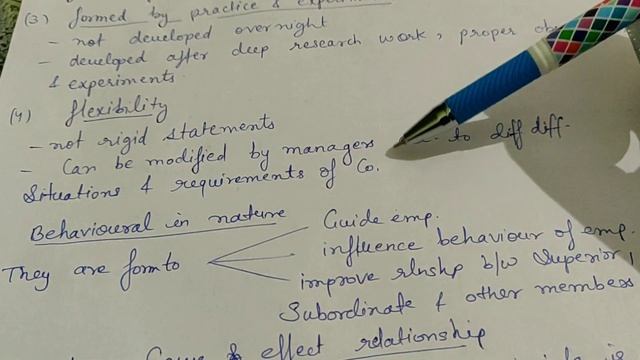 (3) formed by practice &
- not developed overnight
- developed after deep research work, proper
& experiments.
(4) flexibility
- not rigid statements
- Can be modified by managers to diff diff.
Situations & requirements of Co.
Behavioural in nature
They are form to
Guide emp.
influence behaviour of emp.
improve rlnshp b/w Superior,
Subordinate & other members
Cause & effect relationship
is